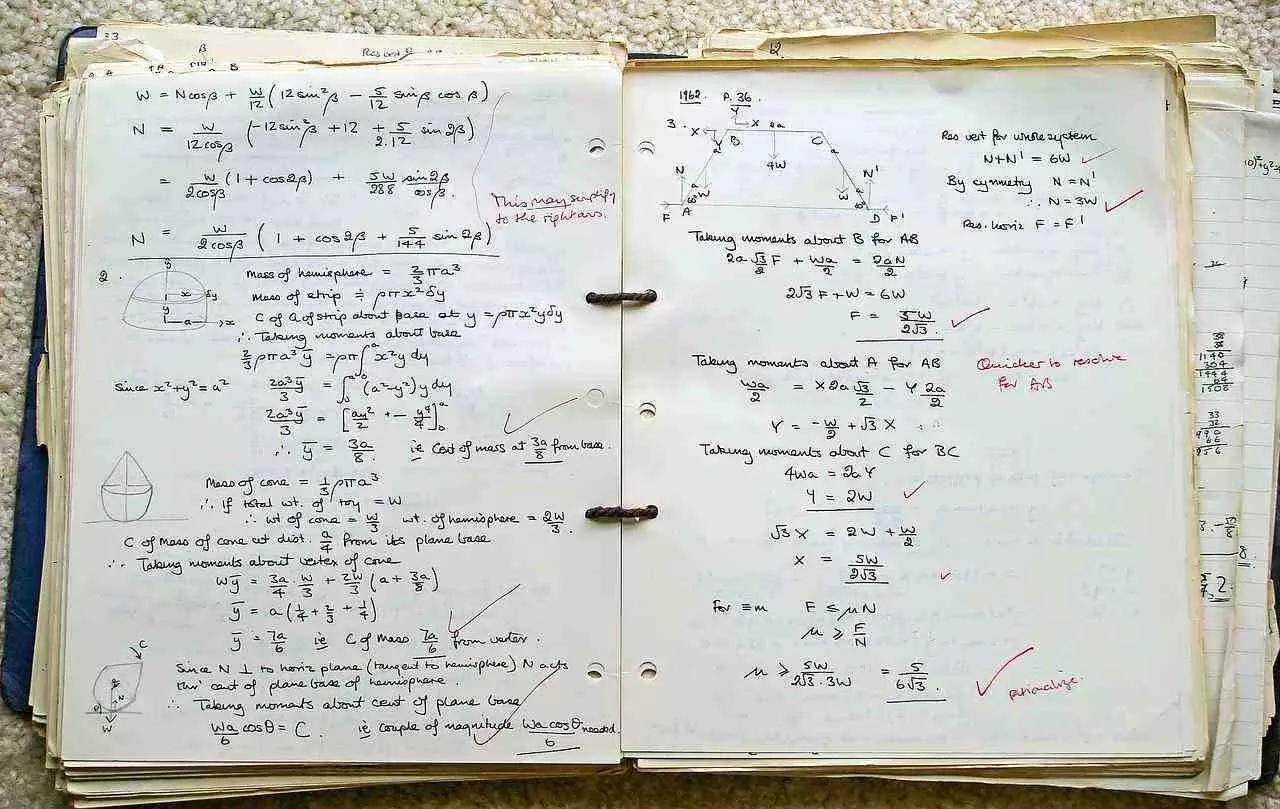 33
β
Res vert
W = N cosβ + W/12 (12 sin²β − 5/12 sinβ cosβ)
N = W/12cosβ (−12sin²β + 12 + 5/2.12 sin2β)
= W/2cosβ (1 + cos2β) + 5W/288 sin2β/cosβ.
This may simplify
to the right ans.
N = W/2cosβ (1 + cos2β + 5/144 sin2β)
2.
y
x
δy
y
a
x
Mass of hemisphere = 2/3 πa³
Mass of strip ≑ ρπx²δy
C of G of strip about base at y = ρπx²yδy
∴ Taking moments about base
2/3 ρπa³ ȳ = ρπ∫₀ᵃ x²y dy
Since x²+y² = a² 2a³ȳ/3 = ∫₀ᵃ (a²−y²) y dy
2a³ȳ/3 = [ay²/2 + − y⁴/4]₀ᵃ
∴ ȳ = 3a/8 ie Cent of mass at 3a/8 from base.
Mass of cone = 1/3 ρπa³
∴ If total wt. of toy = W
∴ wt of cone = W/3 wt. of hemisphere = 2W/3.
C of Mass of cone at dist. a/4 from its plane base
∴ Taking moments about vertex of cone
Wȳ = 3a/4 . W/3 + 2W/3 (a + 3a/8)
ȳ = a(1/4 + 2/3 + 1/4)
ȳ = 7a/6 ie C of Mass 7a/6 from vertex.
C
N
θ
W
Since N ⊥ to horiz plane (tangent to hemisphere) N acts
thro' cent of plane base of hemisphere.
∴ Taking moments about cent of plane base
Wa/6 cosθ = C. ie couple of magnitude Wa cosθ/6 needed.
12
1962. A. 36.
3.
Y
X X 2a
Y B C
a 4W a
N N'
a W W a
60° 60°
F A D F'
Res vert for whole system
N+N' = 6W
By symmetry N = N'
∴ N = 3W
Res. horiz F = F'
Taking moments about B for AB
2a √3/2 F + Wa/2 = 2aN/2
2√3 F + W = 6W
F = 5W/2√3
Taking moments about A for AB
Quicker to resolve
for AB
Wa/2 = X 2a √3/2 − Y 2a/2
Y = −W/2 + √3 X
Taking moments about C for BC
4Wa = 2aY
Y = 2W
√3 X = 2W + W/2
X = 5W/2√3
For ≡m F ≤ μN
μ ≥ F/N
μ ≥ 5W/2√3 . 3W = 5/6√3.
rationalize.
38
38
1140
304
1444
64
1508
33
32
990
66
956
8.
2.